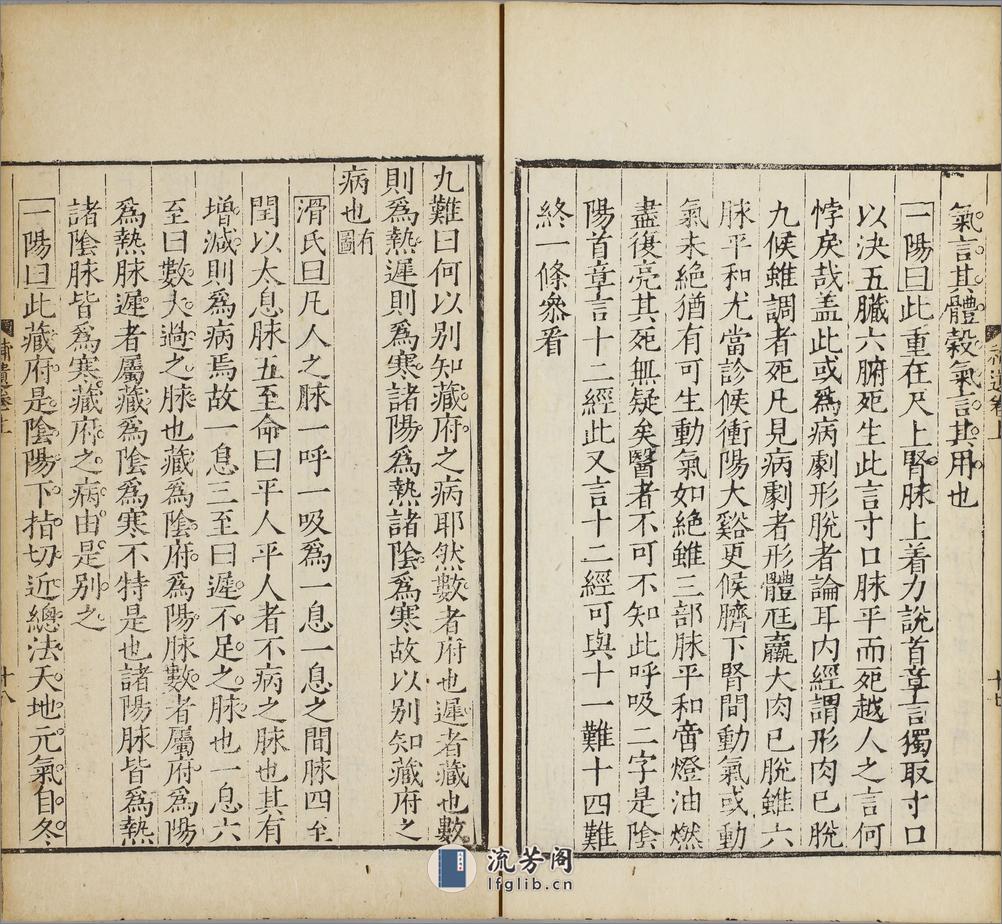 氣言其體穀氣言其用也
一陽曰此重在尺上腎脉上着力說首章言獨取寸口
以決五臟六腑死生此言寸口脉平而死越人之言何
悖戾哉盖此或為病劇形脫者論耳内經謂形肉已脫
九候雖調者死凡見病劇者形體尫羸大肉已脫雖六
脉平和尤當診候衝陽大谿更候臍下腎間動氣或動
氣未絶猶有可生動氣如絶雖三部脉平和啻燈油燃
盡復亮其死無疑矣醫者不可不知此呼吸二字是隂
陽首章言十二經此又言十二經可與十一難十四難
終一條叅看
九難曰何以别知藏府之病耶然數者府也遲者藏也數
則爲熱遲則爲寒諸陽爲熱諸隂爲寒故以别知藏府之
病也有圖
滑氏曰凡人之脉一呼一吸爲一息一息之間脉四至
閏以太息脉五至命曰平人平人者不病之脉也其有
增減則爲病焉故一息三至曰遲不足之脉也一息六
至曰數大過之脉也藏爲隂府爲陽脉數者屬府爲陽
爲熱脉遲者屬藏爲隂爲寒不特是也諸陽脉皆爲熱
諸隂脉皆爲寒藏府之病由是别之
一陽曰此藏府是隂陽下指切近總法天地元氣自冬
補遺卷上
十八
流芳阁
lfglib.cn